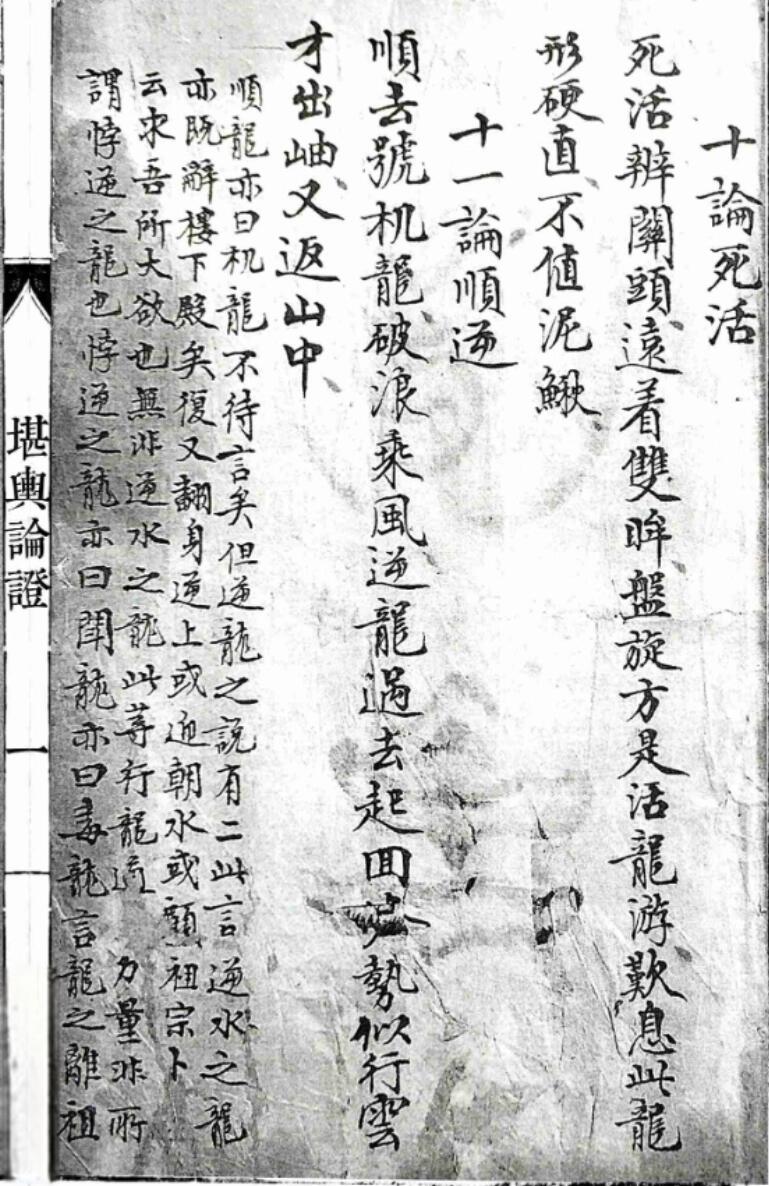 十論死活
死活辨關頭遠着雙眸盤旋方是活龍游歎息此龍
形硬直不值泥鰍
十一論順逆
順去號机龍破浪乘風逆龍過去起回勢似行雲
才出岫又返山中
順龍亦曰机龍不待言矣但逆龍之說有二此言逆水之龍
亦既辭樓下殿矣復又翻身逆上或迎朝水或顧祖宗卜
云求吾所大欲也無非逆水之龍此等行龍力量非所
謂悖逆之龍也悖逆之龍亦曰龍亦曰毒龍言龍之離祖
堪輿論證
一